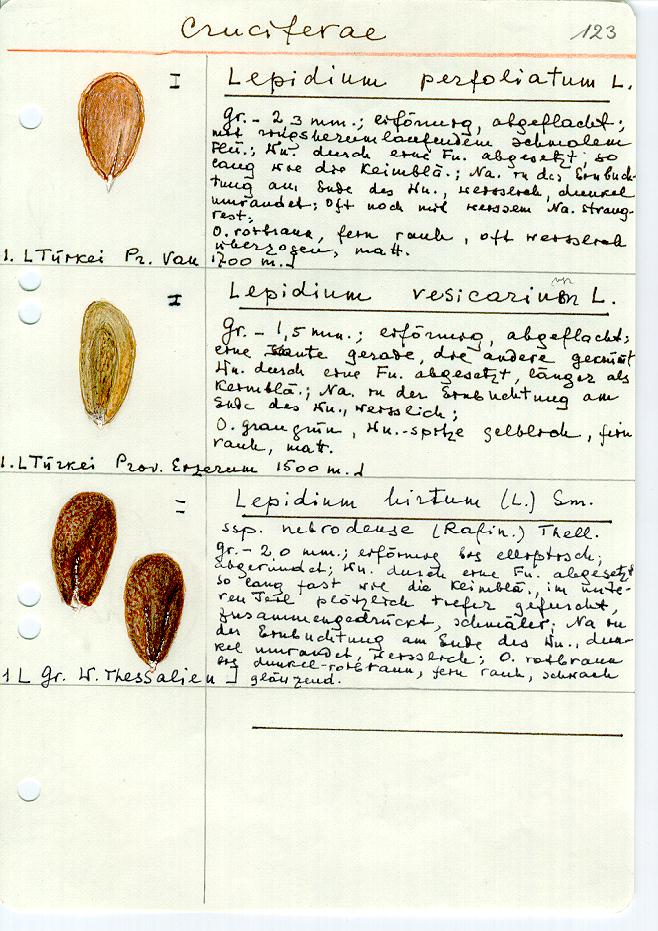 Cruciferae
123
I
Lepidium perfoliatum L.
Gr. - 2 3 mm.; eiförmig, abgeflacht;
mit ringsherumlaufendem schmalem
Flü.; Wu. durch eine Fu. abgesetzt, so
lang wie die Keimblä.; Na. in der Einbuch-
tung am Ende des Wu., weisslich, dunkel
umrandet; oft noch mit weissem Na. strang-
rest;
O. rotbraun, fein rauh, oft weisslich
überzogen, matt.
1. L Türkei Pr. Van 1700 m.
I
Lepidium vesicarium L.
Gr. - 1,5 mm.; eiförmig, abgeflacht;
eine Kante gerade, die andere gekrümmt
Wu. durch eine Fu. abgesetzt, länger als
Keimblä.; Na. in der Einbuchtung am
Ende des Wu., weisslich;
O. graugrün, Wu.-spitze gelblich, fein
rauh, matt.
1. L Türkei Prov. Erzerum 1500 m.
Lepidium hirtum (L.) Sm.
ssp. nebrodense (Rafin.) Thell.
Gr. - 2,0 mm.; eiförmig bis elliptisch;
abgerundet; Wu. durch eine Fu. abgesetzt
so lang fast wie die Keimblä., im unte-
ren Teil plötzlich tiefer gefurcht,
zusammengedrückt, schmäler; Na in
der Einbuchtung am Ende des Wu., dun-
kel umrandet, weisslich; O. rotbraun
bis dunkel-rotbraun, fein rauh, schwach
glänzend.
1 L Gr. W. Thessalien